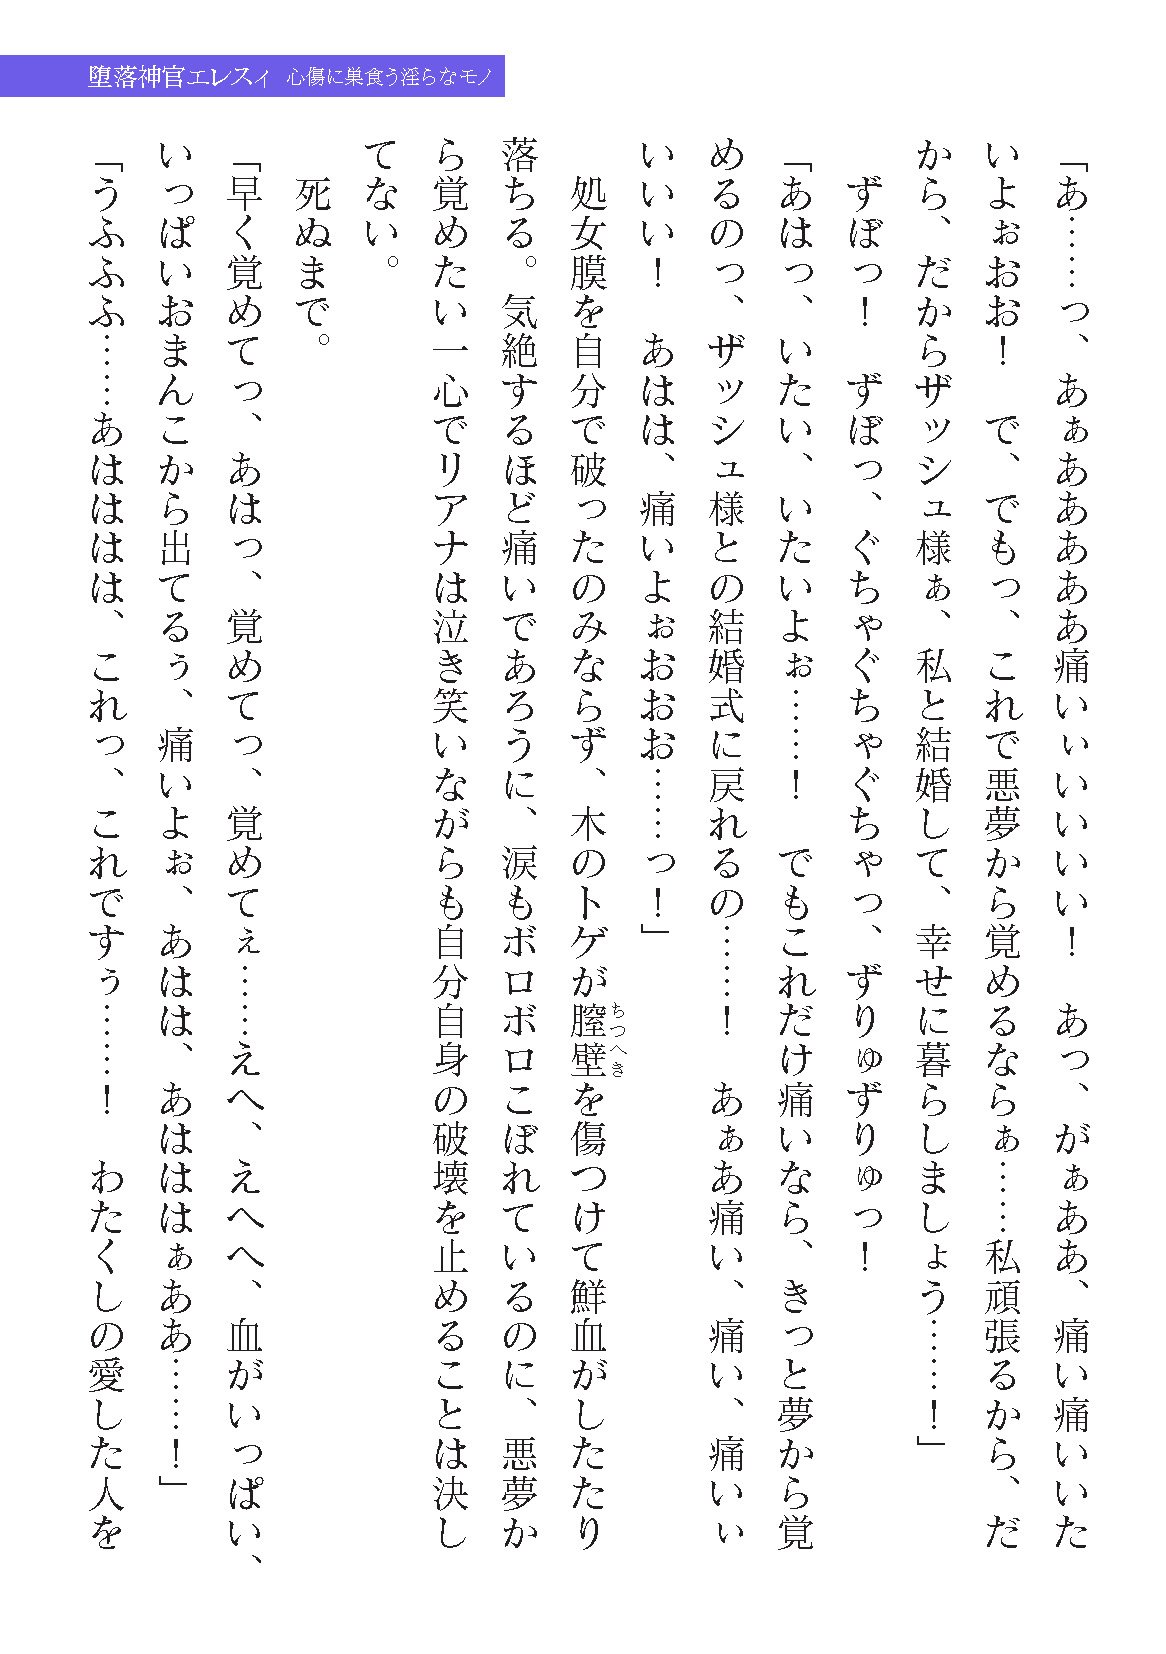 堕落神官エレスィ 心傷に巣食う淫らなモノ
「あ……っ、あぁああああ痛いぃいいいい！　あっ、がぁああ、痛い痛いいた
いよぉおお！　で、でもっ、これで悪夢から覚めるならぁ……私頑張るから、だ
から、だからザッシュ様ぁ、私と結婚して、幸せに暮らしましょう……！」
ずぼっ！　ずぼっ、ぐちゃぐちゃぐちゃっ、ずりゅずりゅっ！
「あはっ、いたい、いたいよぉ……！　でもこれだけ痛いなら、きっと夢から覚
めるのっ、ザッシュ様との結婚式に戻れるの……！　あぁあ痛い、痛い、痛いぃ
いいい！　あはは、痛いよぉおおお……っ！」
処女膜を自分で破ったのみならず、木のトゲが膣壁を傷つけて鮮血がしたたり
ちつへき
落ちる。気絶するほど痛いであろうに、涙もボロボロこぼれているのに、悪夢か
ら覚めたい一心でリアナは泣き笑いながらも自分自身の破壊を止めることは決し
てない。
死ぬまで。
「早く覚めてっ、あはっ、覚めてっ、覚めてぇ……えへ、えへへ、血がいっぱい、
いっぱいおまんこから出てるぅ、痛いよぉ、あはは、あはははぁああ……！」
「うふふふ……あはははは、これっ、これですぅ……！　わたくしの愛した人を